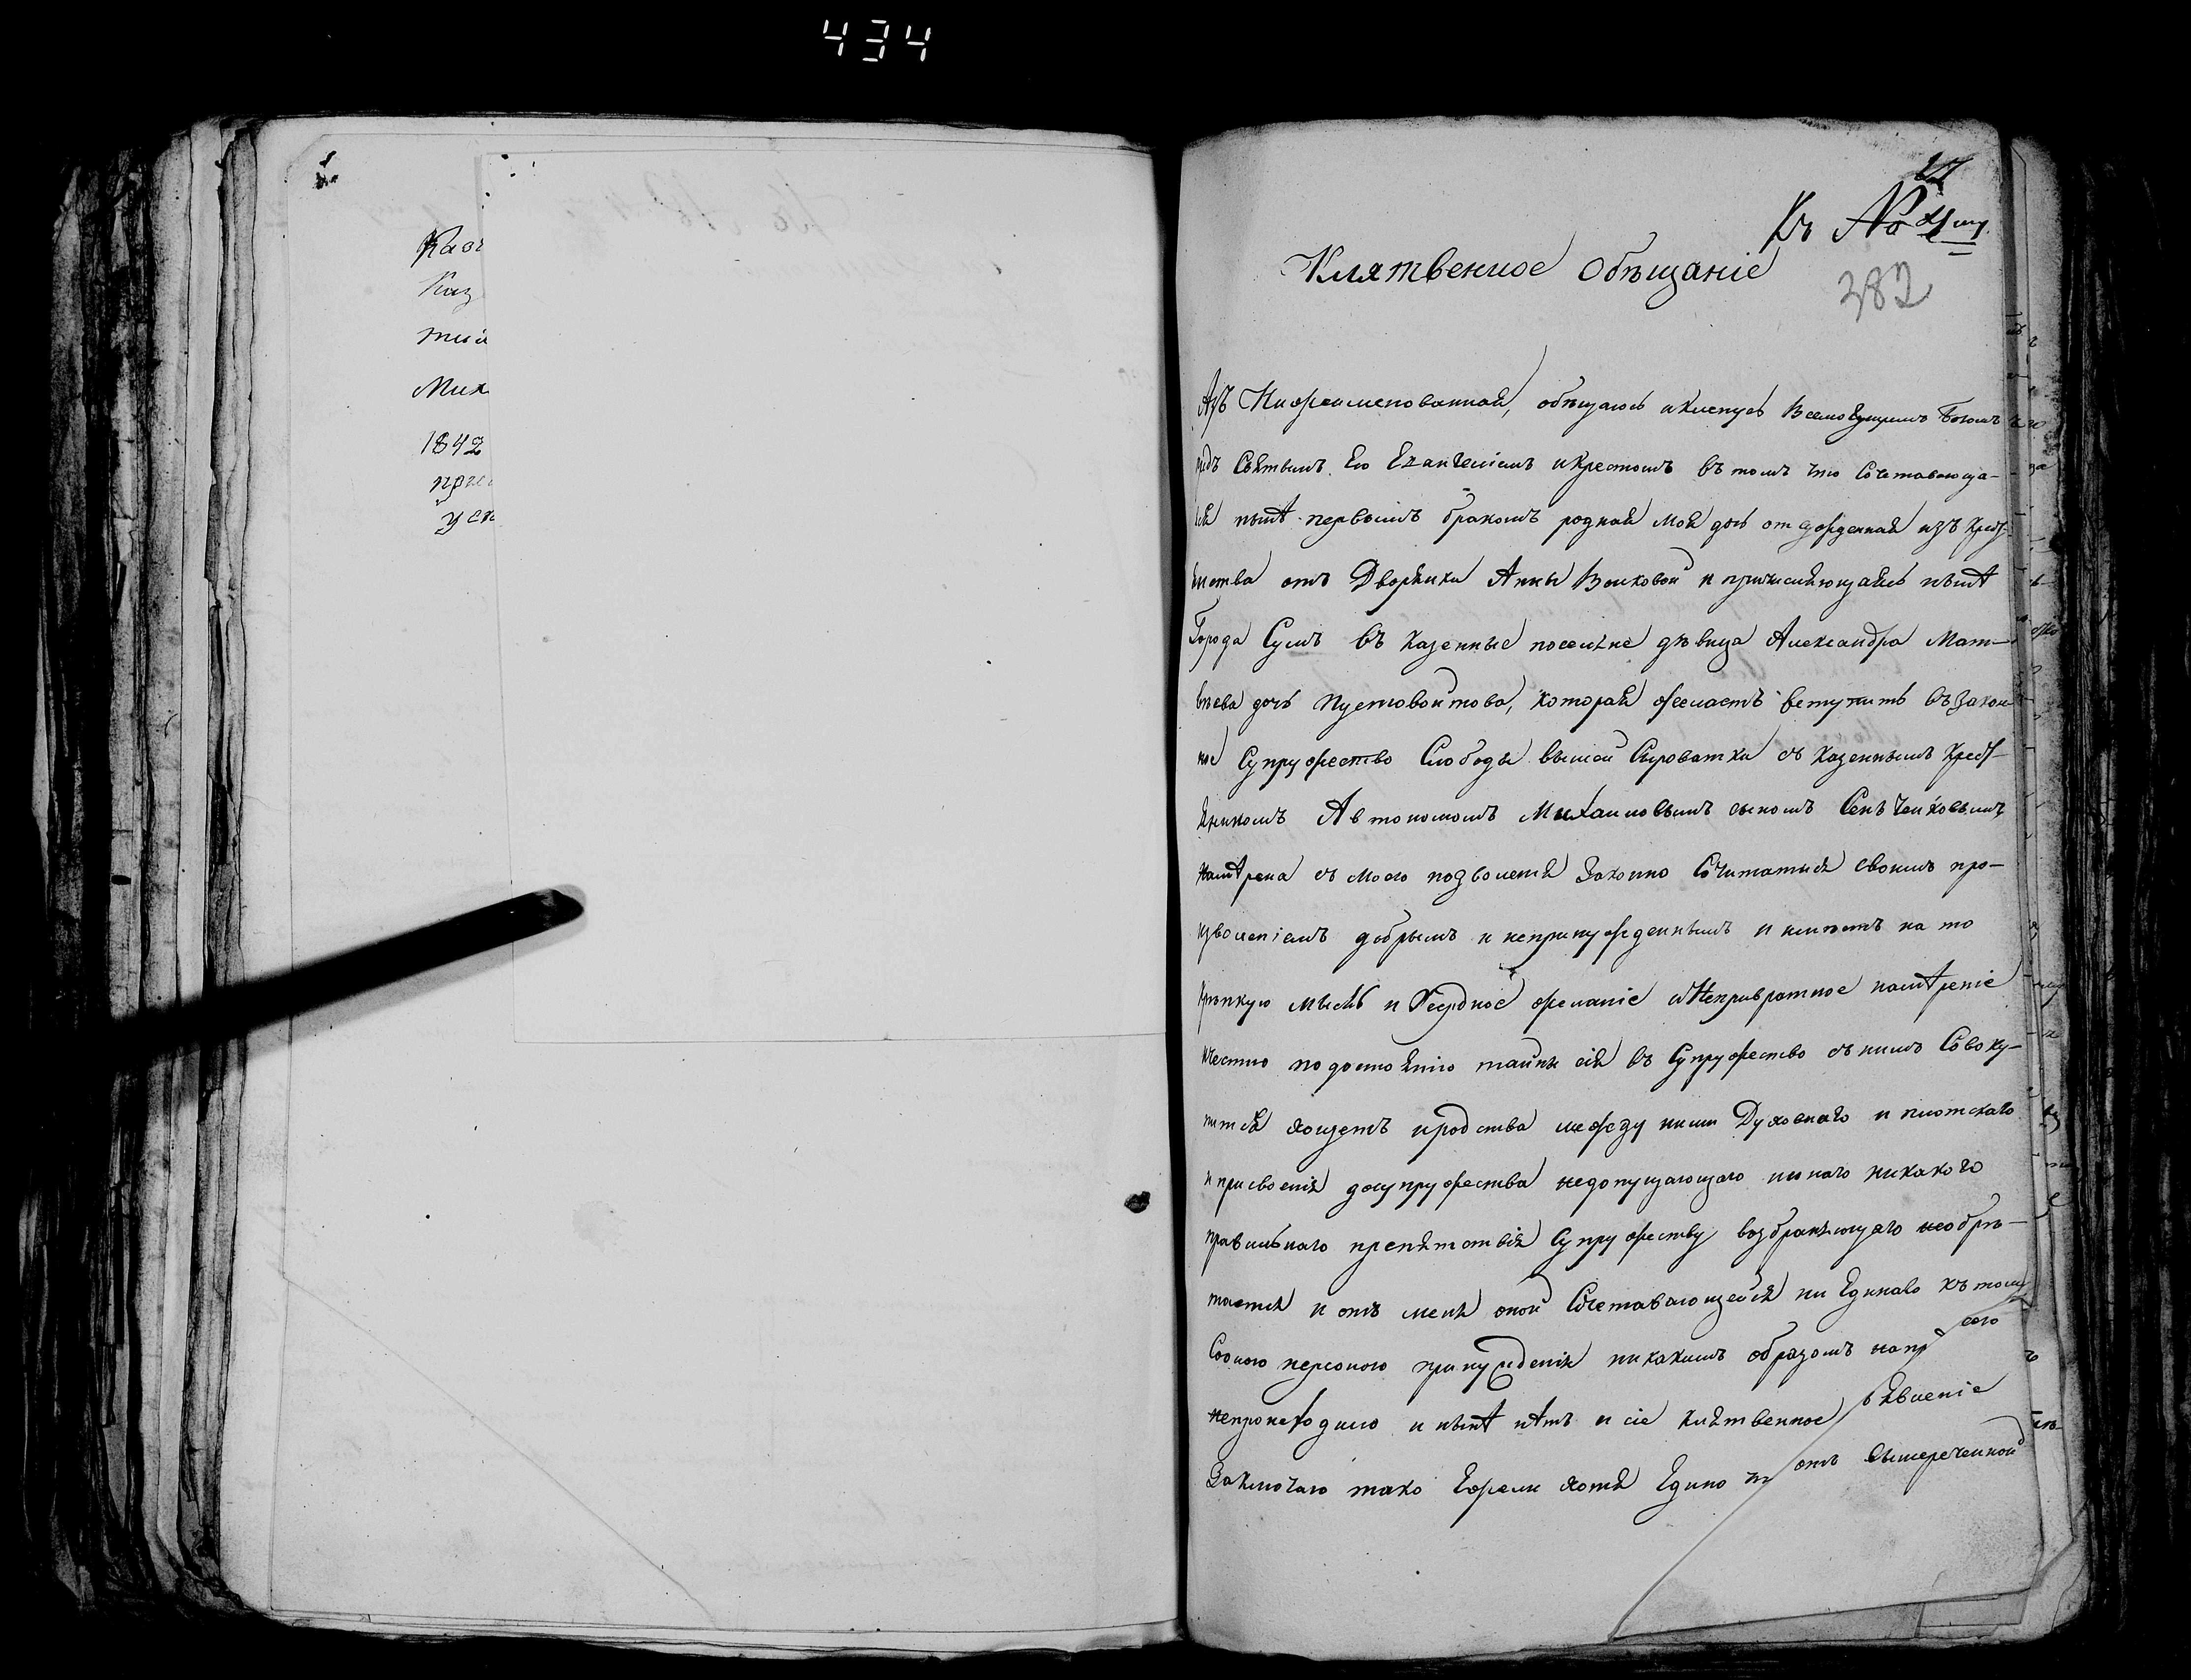 434
Каз
Каз
тий
Мих
1842
при
усп
27
Къ № 4му.
Клятвенное Обѣщаніе
382
Азъ Нижеименованной, обѣщаюсь и Кленусь Всемогущимъ Богомъ
редъ Святымъ Его Евангеліемъ и крестомъ въ томъ что Сочетавающа-
ся нынѣ первымъ бракомъ родная моя дочь отсужденная изъ Крестъ-
янства отъ Дворянки Анны Волковой и причисляющаясь нынѣ
Города Сумъ въ казенные поселяне дѣвица Александра Мат-
вѣева дочь Пустовойтова, которая желаетъ вступить въ закон-
ное Супружество Слободы вышой Сыроватки съ казеннымъ Кресть-
яниномъ Автономомъ Михаиловымъ сыномъ Сенѣченковымъ
намѣрена съ моего позволенія Законно Сочитатися своимъ про-
изволеніемъ добрымъ и непринужденнымъ и имѣетъ на то
крѣпкую мысль и Усердное желаніе и Непривратное намѣреніе
и честно по достоянію тайны сія въ Супружество съ нимъ Совоку-
питься хощетъ и родства между ними Духовнаго и плотскаго
и присвоенія до супружества недопущающаго инаго никакого
правильнаго препятствія Супружеству возбраняющаго необрѣ-
тается и отъ меня оной Сочетавающейся ни Единаго къ тому
Собного персоного принужденія никакимъ образомъ напр сего
непроисходило и нынѣ нѣтъ и сіе клятвенное бявленіе
Заключаю тако Ежели хотя Едино отъ вышереченной